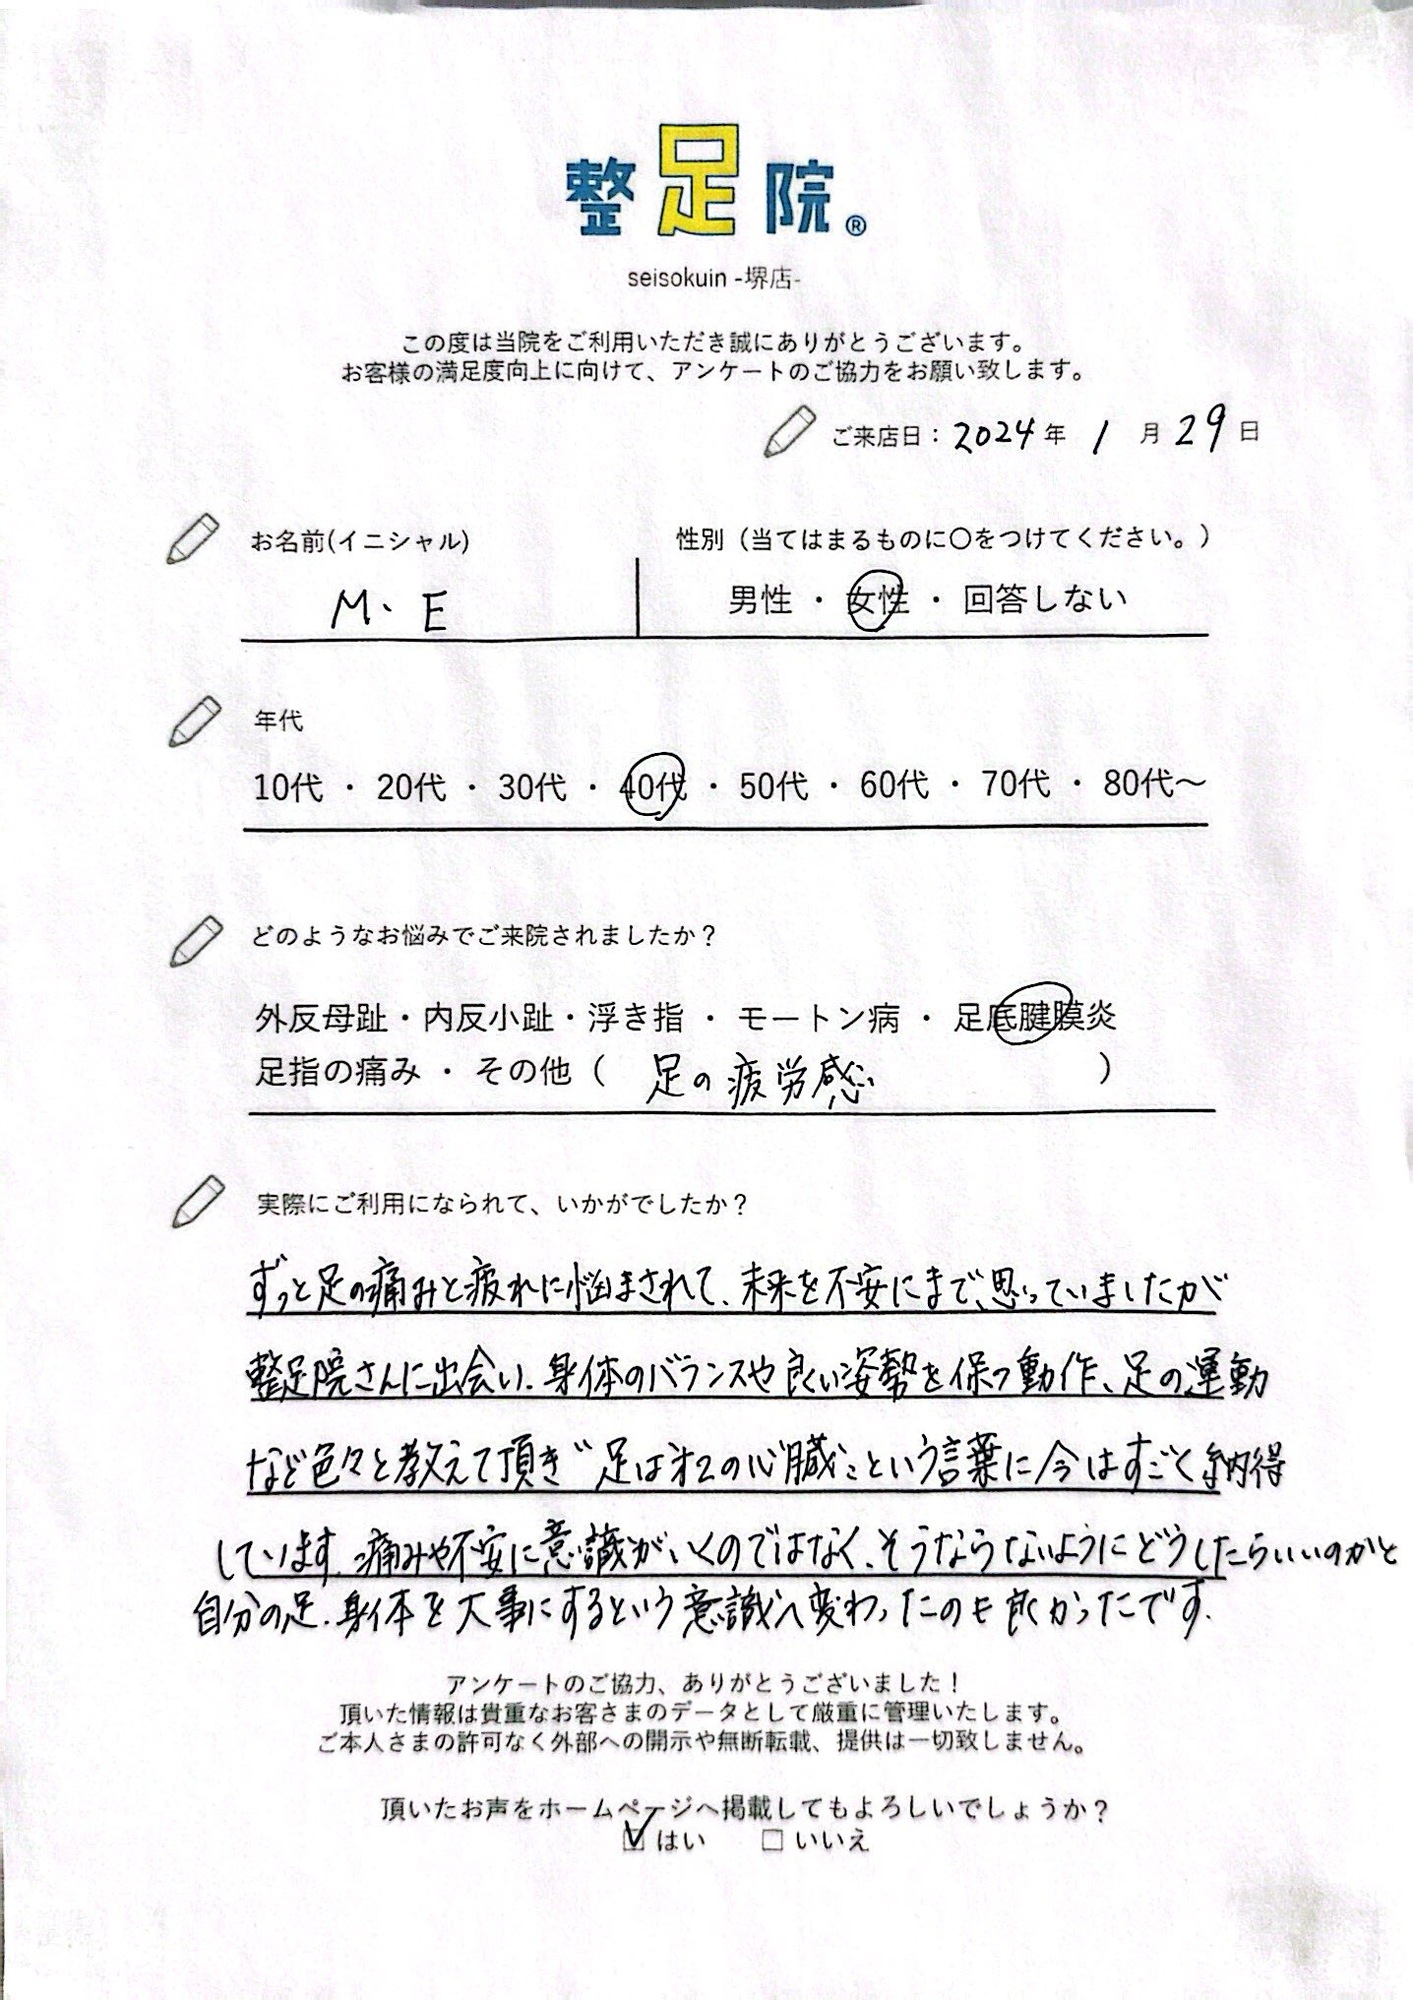 整足院®
seisokuin -堺店-
この度は当院をご利用いただき誠にありがとうございます。
お客様の満足度向上に向けて、アンケートのご協力をお願い致します。
ご来店日：2024年 1 月 29 日
お名前(イニシャル)
性別（当てはまるものに〇をつけてください。）
M・E
男性 ・ 女性 ・ 回答しない
年代
10代 ・ 20代 ・ 30代 ・ 40代 ・ 50代 ・ 60代 ・ 70代 ・ 80代〜
どのようなお悩みでご来院されましたか？
外反母趾・内反小趾・浮き指 ・ モートン病 ・ 足底腱膜炎
足指の痛み ・ その他（ 足の疲労感 ）
実際にご利用になられて、いかがでしたか？
ずっと足の痛みと疲れに悩まされて、未来を不安にまで、思っていましたが
整足院さんに出会い、身体のバランスや良い姿勢を保つ動作、足の運動
など色々と教えて頂き"足は才2の心臓"という言葉に今はすごく納得
しています。痛みや不安に意識がいくのではなく、そうならないようにどうしたらいいのかと
自分の足、身体を大事にするという意識へ変わったのも良かったです。
アンケートのご協力、ありがとうございました！
頂いた情報は貴重なお客さまのデータとして厳重に管理いたします。
ご本人さまの許可なく外部への開示や無断転載、提供は一切致しません。
頂いたお声をホームページへ掲載してもよろしいでしょうか？
☑ はい □ いいえ